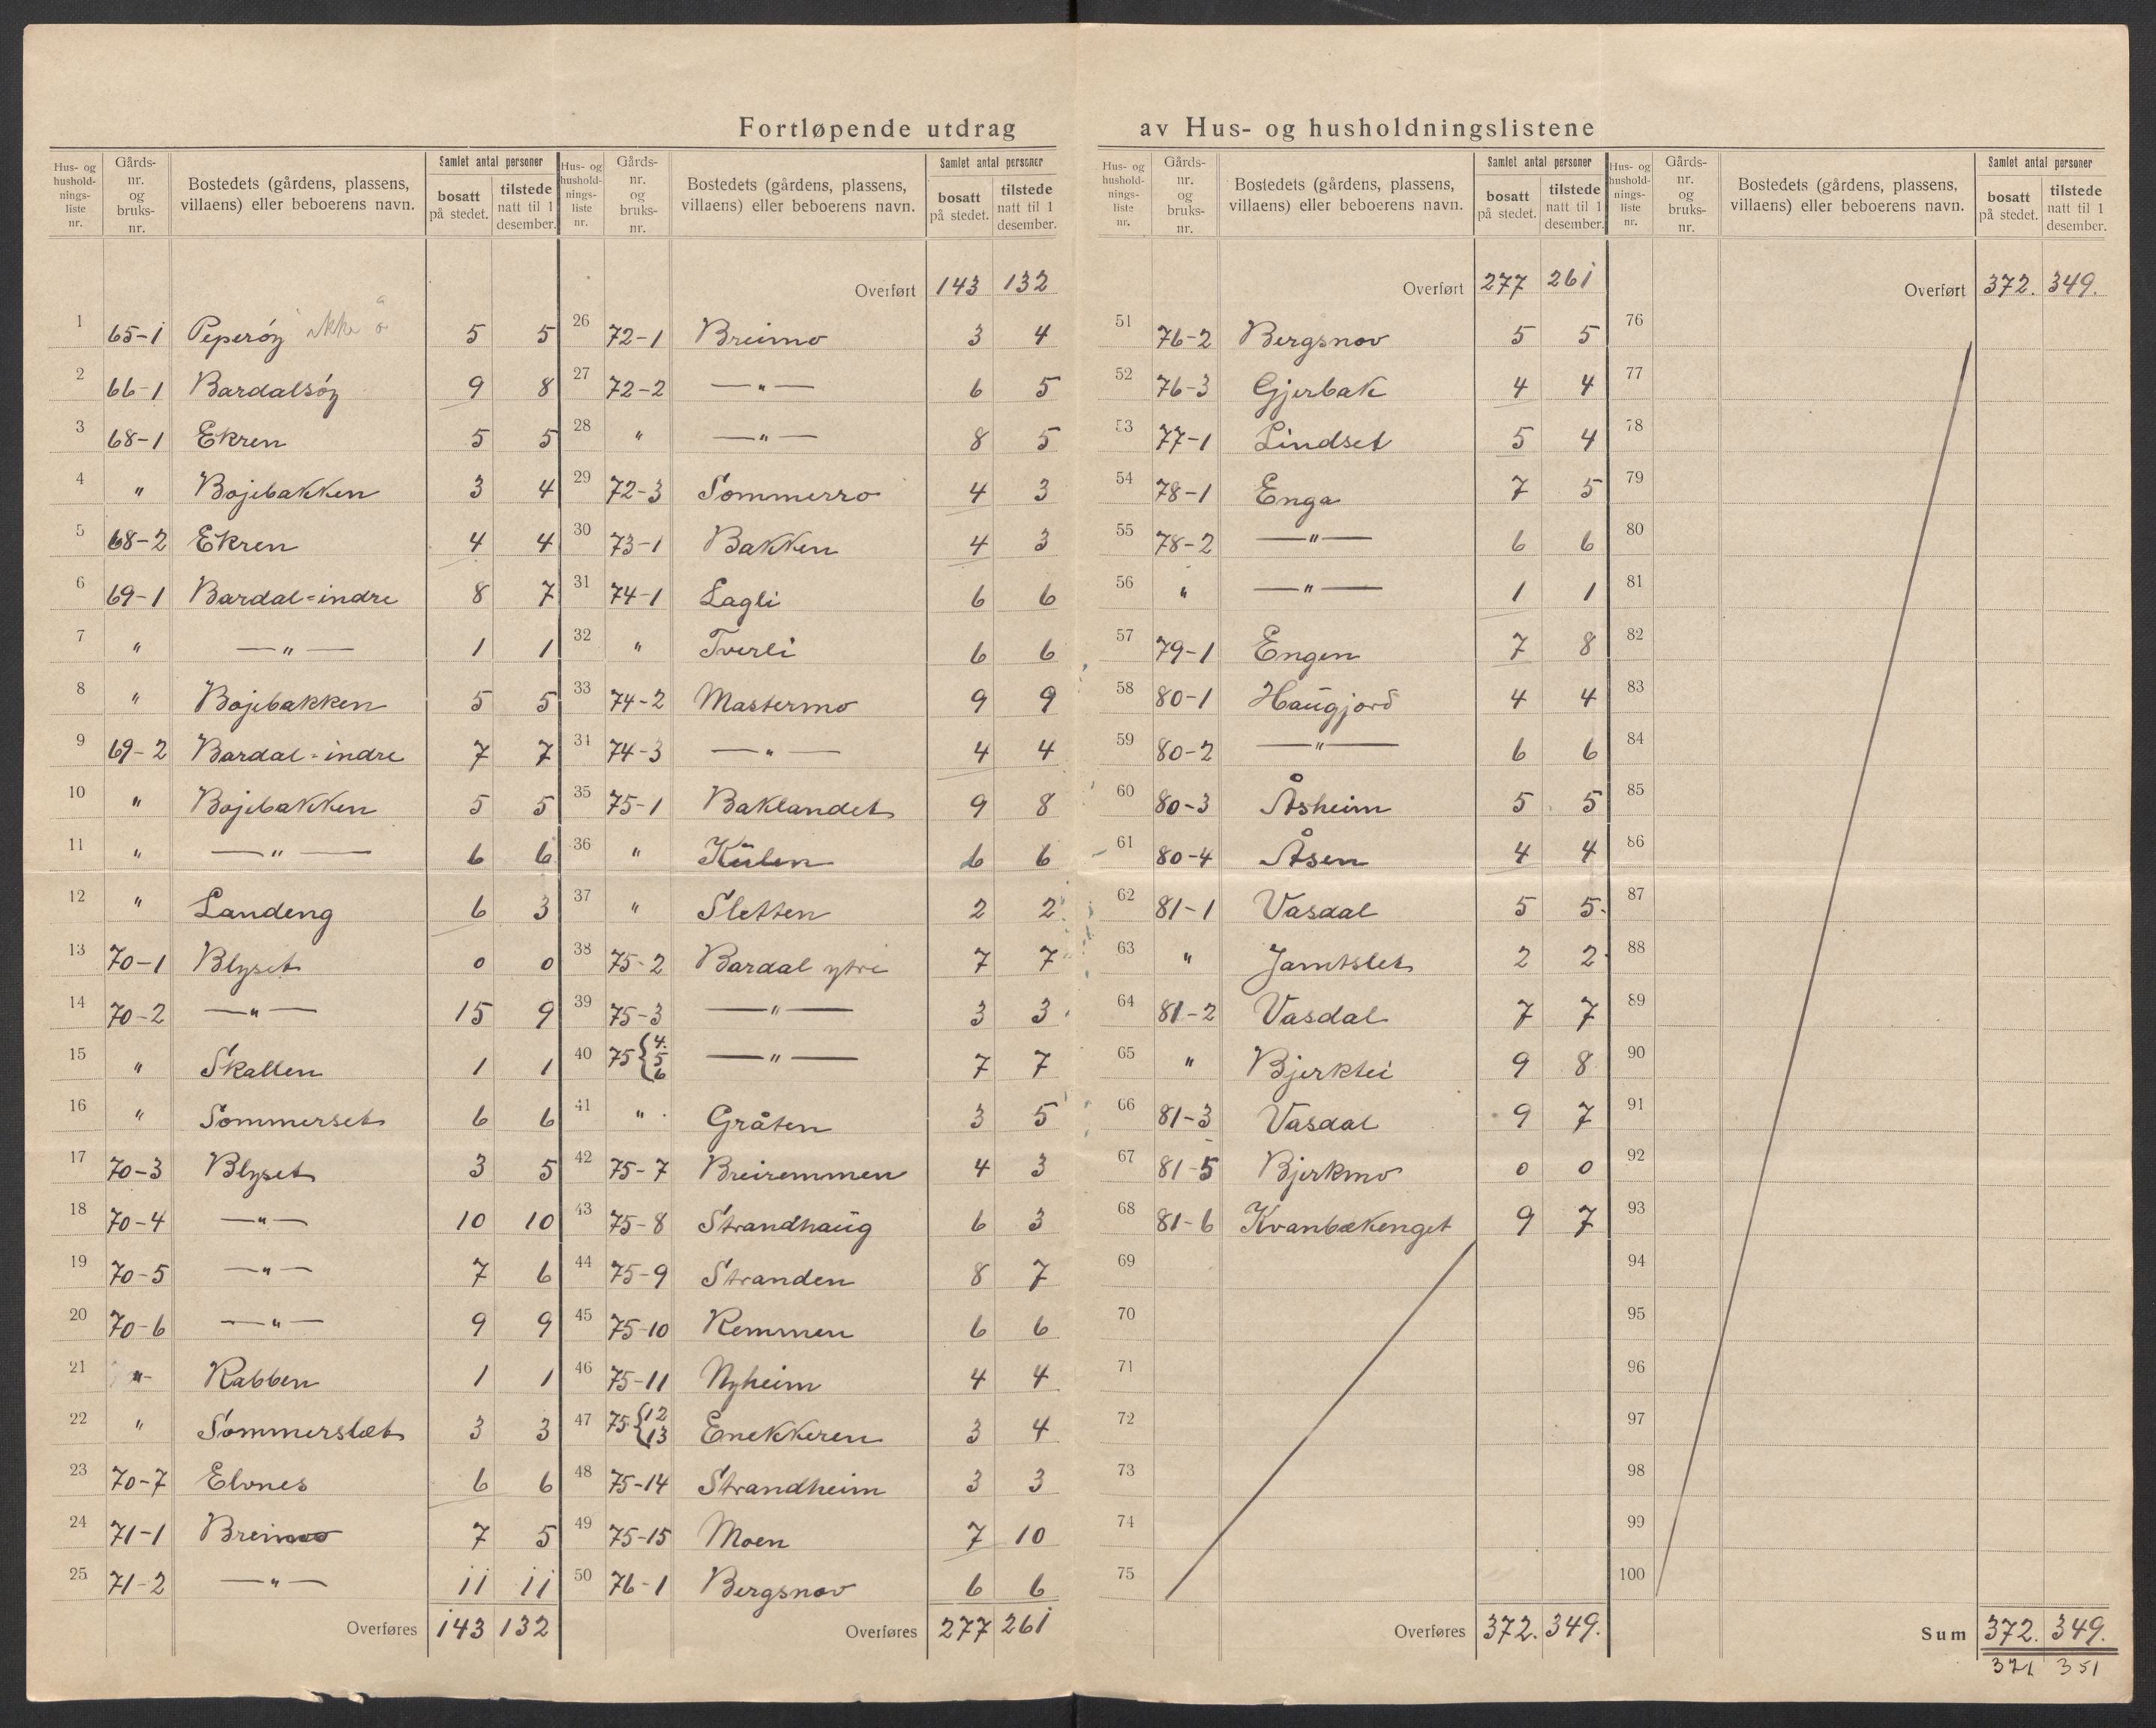 Fortløpende utdrag av Hus- og husholdningslistene
Hus- og hushold-nings-liste nr. Gårds-nr. og bruks-nr. Bostedets (gårdens, plassens, villaens) eller beboerens navn. Samlet antal personer bosatt på stedet. tilstede natt til 1 desember.
1 65-1 Peperöy ikke 5 5
2 66-1 Bardalsöy 9 8
3 68-1 Ekren 5 5
4 " Bojebakken 3 4
5 68-2 Ekren 4 4
6 69-1 Bardal=indre 8 7
7 " —"— 1 1
8 " Bojebakken 5 5
9 69-2 Bardal=indre 7 7
10 " Bojebakken 5 5
11 " —"— 6 6
12 " Landeng 6 3
13 70-1 Blyset 0 0
14 70-2 —"— 15 9
15 " Skallen 1 1
16 " Sommerset 6 6
17 70-3 Blyset 3 5
18 70-4 —"— 10 10
19 70-5 —"— 7 6
20 70-6 —"— 9 9
21 " Rabben 1 1
22 " Sommerslæt 3 3
23 70-7 Elvnes 6 6
24 71-1 Breimo 7 5
25 71-2 —"— 11 11
Overføres 143 132
Hus- og hushold-nings-liste nr. Gårds-nr. og bruks-nr. Bostedets (gårdens, plassens, villaens) eller beboerens navn. Samlet antal personer bosatt på stedet. tilstede natt til 1 desember.
Overført 143 132
26 72-1 Breimo 3 4
27 72-2 —"— 6 5
28 " —"— 8 5
29 72-3 Sommerro 4 3
30 73-1 Bakken 4 3
31 74-1 Lagli 6 6
32 " Tverli 6 6
33 74-2 Mastermo 9 9
34 74-3 —"— 4 4
35 75-1 Baklandet 9 8
36 " Külen 6 6
37 " Sletten 2 2
38 75-2 Bardal ytre 7 7
39 75-3 —"— 3 3
40 75{4. 5 6 —"— 7 7
41 " Gråten 3 5
42 75-7 Breiremmen 4 3
43 75-8 Strandhaüg 6 3
44 75-9 Stranden 8 7
45 75-10 Remmen 6 6
46 75-11 Nyheim 4 4
47 75{12 13 Enekkeren 3 4
48 75-14 Strandheim 3 3
49 75-15 Moen 7 10
50 76-1 Bergsnov 6 6
Overføres 277 261
Hus- og hushold-nings-liste nr. Gårds-nr. og bruks-nr. Bostedets (gårdens, plassens, villaens) eller beboerens navn. Samlet antal personer bosatt på stedet. tilstede natt til 1 desember.
Overført 277 261
51 76-2 Bergsnov 5 5
52 76-3 Gjerbak 4 4
53 77-1 Lindset 5 4
54 78-1 Enga 7 5
55 78-2 —"— 6 6
56 " —"— 1 1
57 79-1 Engen 7 8
58 80-1 Haügjord 4 4
59 80-2 —"— 6 6
60 80-3 Åsheim 5 5
61 80-4 Åsen 4 4
62 81-1 Vasdal 5 5
63 " Jamtslet 2 2
64 81-2 Vasdal 7 7
65 " Bjerkli 9 8
66 81-3 Vasdal 9 7
67 81-5 Bjerkmo 0 0
68 81-6 Kvanbækenget 9 7
69
70
71
72
73
74
75
Overføres 372. 349.
Hus- og hushold-nings-liste nr. Gårds-nr. og bruks-nr. Bostedets (gårdens, plassens, villaens) eller beboerens navn. Samlet antal personer bosatt på stedet. tilstede natt til 1 desember.
Overført 372. 349.
76
77
78
79
80
81
82
83
84
85
86
87
88
89
90
91
92
93
94
95
96
97
98
99
100
Sum 372. 349.
371 351